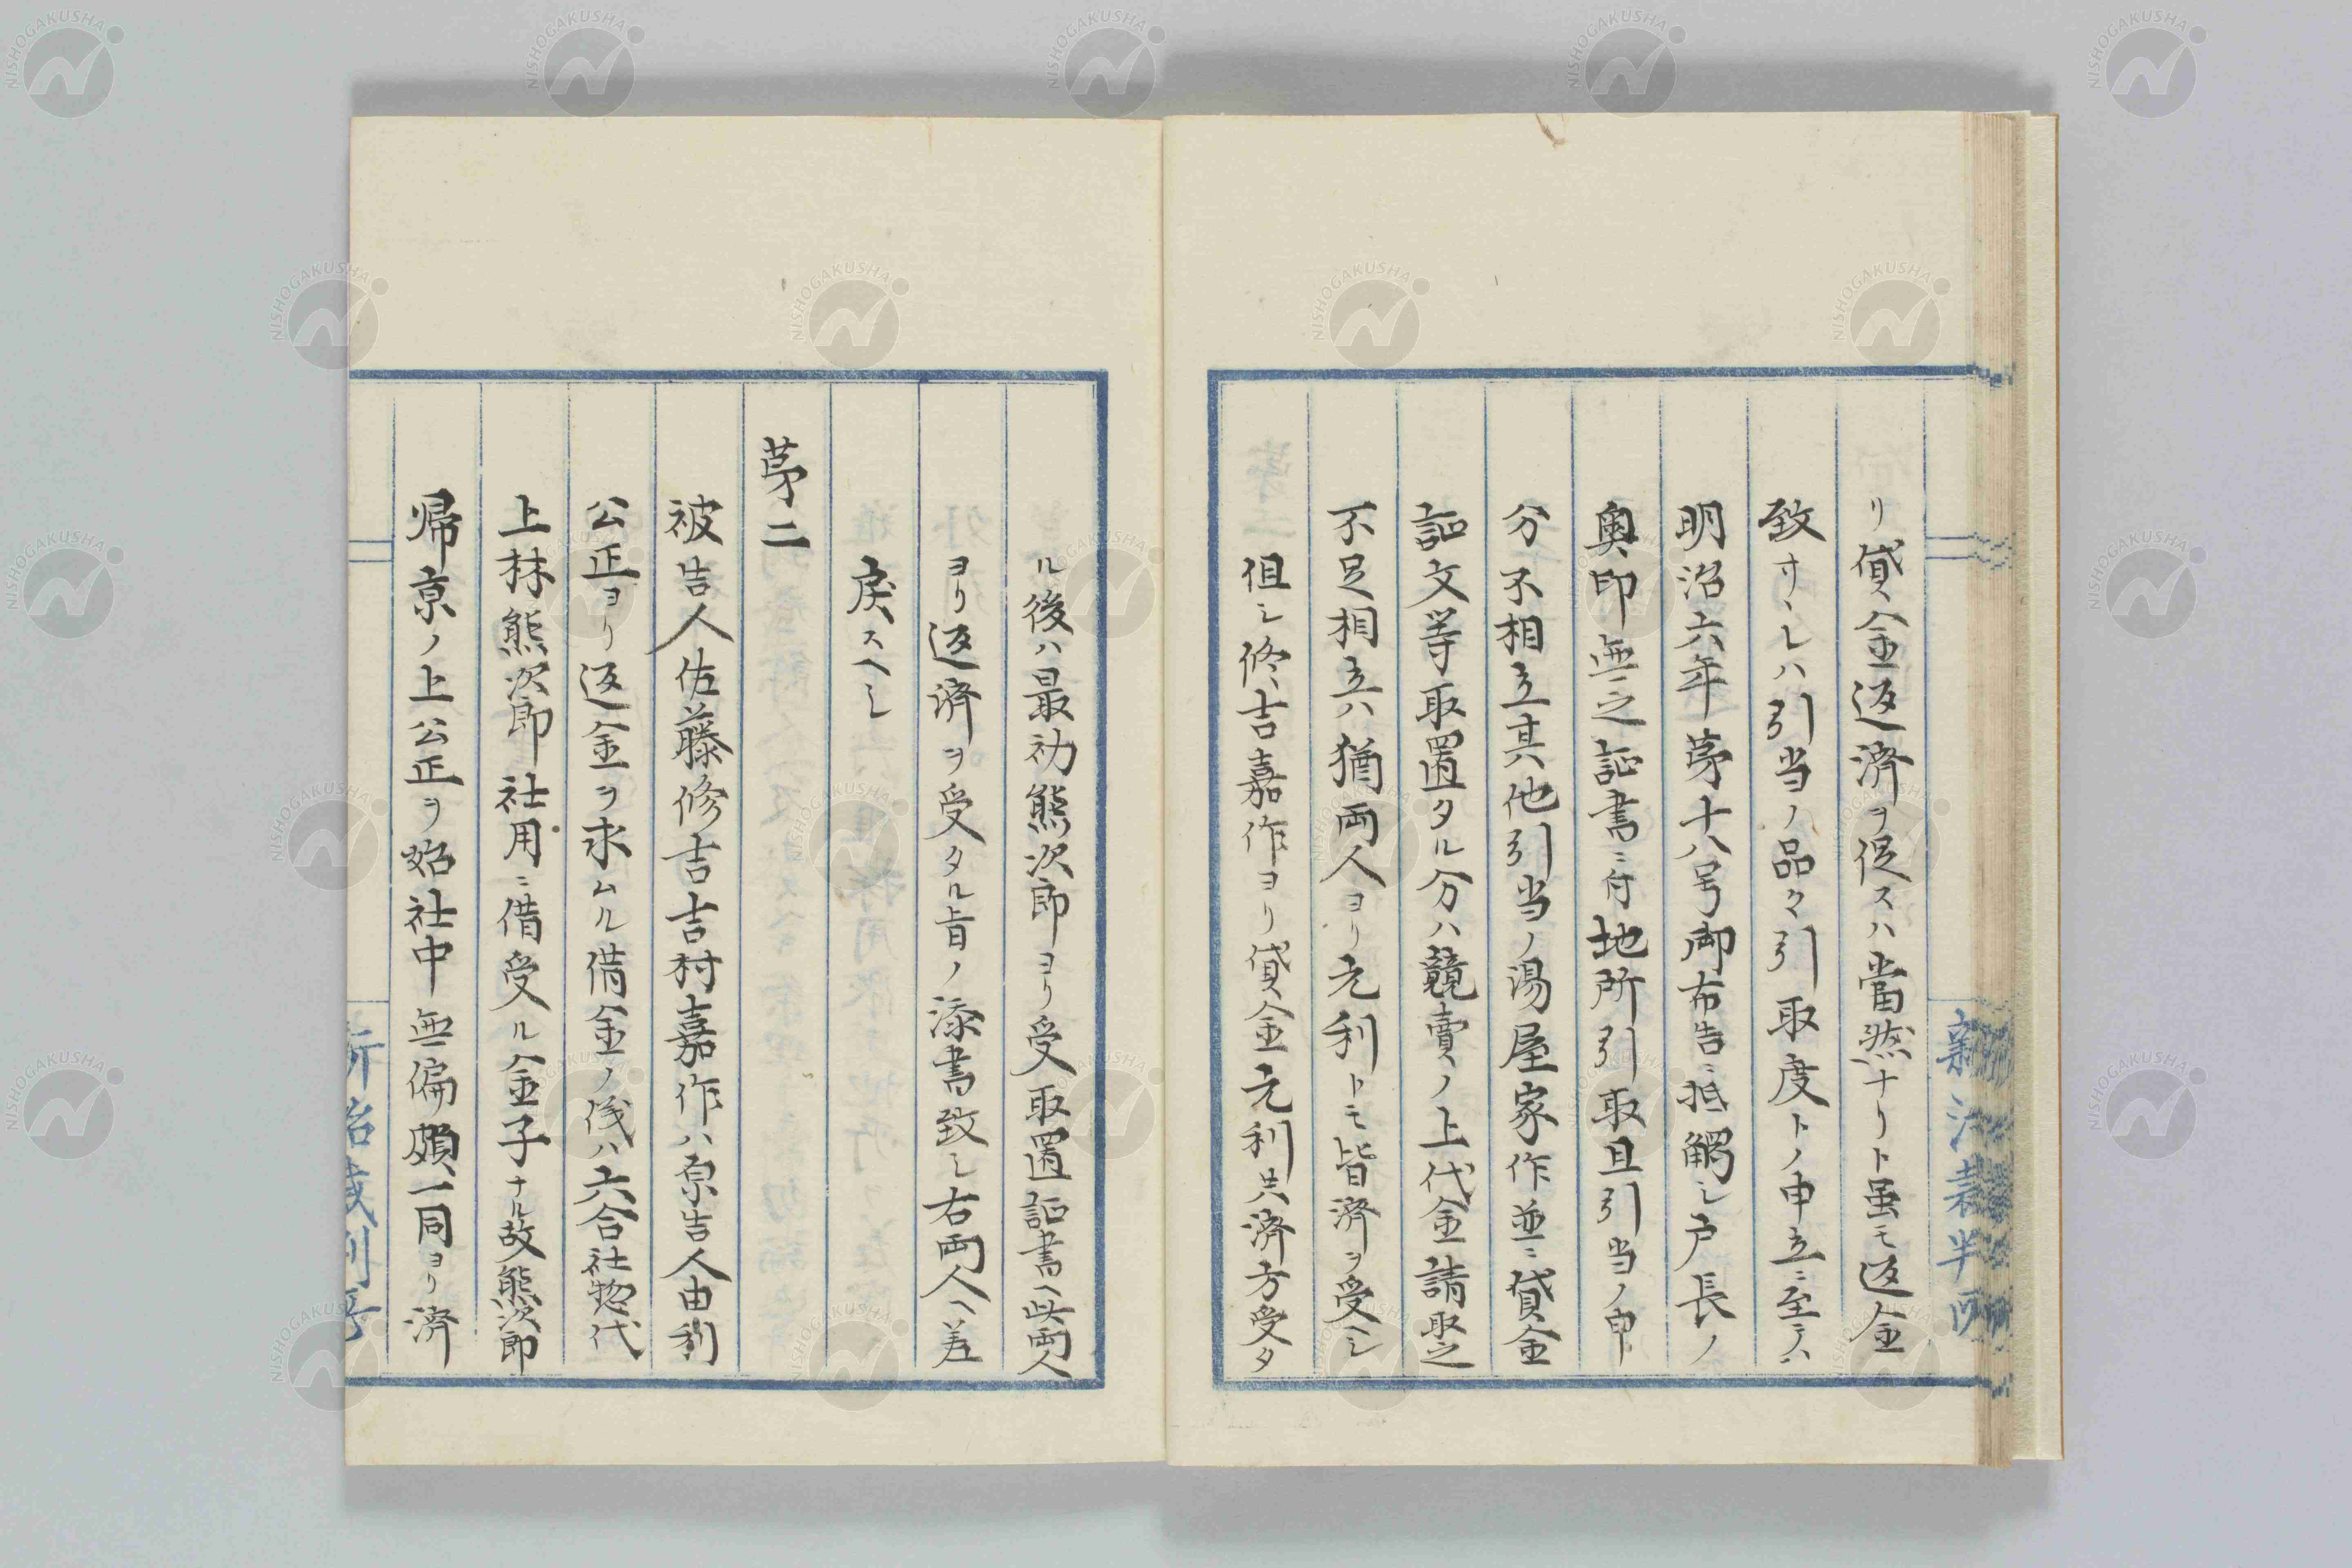 リ貸金返済ヲ促スハ當然ナリト虽モ返金
致サヽレハ引当ノ品々引取度トノ申立ニ至テハ
明治六年苐十八号御布告ニ抵觸シ戸長ノ
奥印無之証書ニ付地所引取且引当ノ申
分不相立其他引当ノ湯屋家作並ニ貸金
証文等取置タル分ハ競賣ノ上代金請取之
不足相立ハ猶両人ヨリ元利トモ皆済ヲ受ヘシ
但シ修吉嘉作ヨリ貸金元利共済方受タ
ル後ハ最初熊次郎ヨリ受取置証書ヘ此両人
ヨリ返済ヲ受タル旨ノ添書致シ右両人ヘ差
戻スヘシ
苐二
被告人佐藤修吉吉村嘉作ハ原告人由利
公正ヨリ返金ヲ求ムル借金ノ儀ハ六合社惣代
上林熊次郎社用ニ借受ル金子ナル故熊次郎
帰京ノ上公正ヲ始社中無偏頗一同ヨリ済
新治裁判所
NISHOGAKUSHA